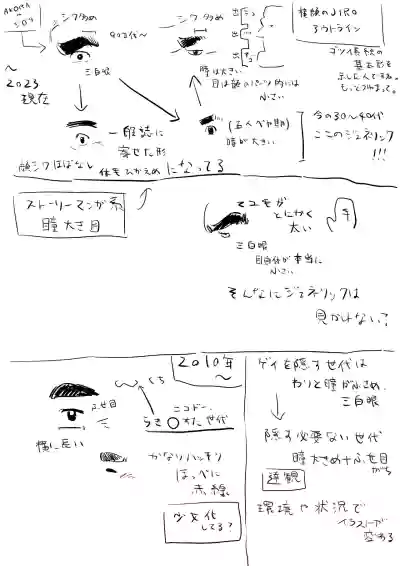 シワ多め
90年代〜
三白眼
〜
2023
現在
シワ多め
瞳は大きい
目は顔のパーツ的には
小さい
出
出
出
アウトライン
ゴツイ系統の
基本形を
一般誌に
寄せた形
(五人べや期)
瞳が大きい
今の30〜40代
ここのジェネリック
!!!
顔シワほぼなし
体毛ひかえめになってる
ストーリーマンガ系
瞳大き目
マユモが
とにかく
太い
三白眼
目自体が本当に
小さい
そんなにジェネリックは
見かけない?
2010年
〜
ふせ目
横に長い
くち
ニコニコ
らき〇すた世代
かなりハッキリ
ほっぺに
赤線
少女化
してる?
ゲイを隠す世代は
わりと瞳が小さめ、
三白眼
隠す必要ない世代
瞳大きめ+ふせ目
がち
達観
環境や状況で
イラストが
変わる